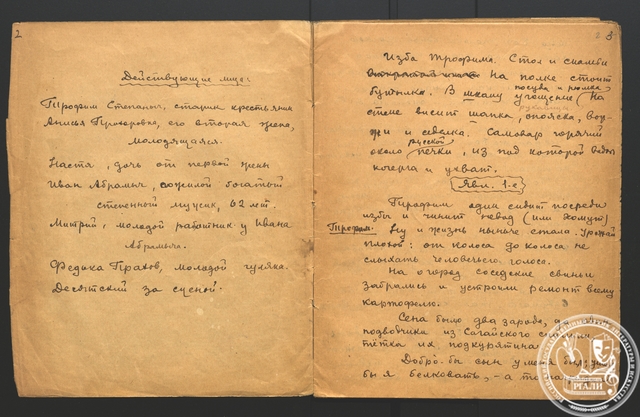 2
Действующие лица:
Трофим Степаныч, старик крестьянин
Анисья Прохоровна, его вторая жена,
молодящаяся.
Настя, дочь от первой жены
Иван Абрамыч, пожилой богатый
степенный мужик, 62 лет.
Митрий, молодой работник у Ивана
Абрамыча.
Федька Прахов, молодой гуляка.
Десятский за сценой.
3
Изба Трофима. Стол и скамьи
На полке стоит
посуда и рюмка
будилка. В шкапу угощение (На
стене висит шапка, опояска, вож-
жи и седелка. Самовар горячий
русской
около печки, из под которой видны
кочерга и ухват.
Явл. 1-е
Трофим один сидит посреди
избы и чинит невод (или хомут)
Трофим. Ну и жизнь нынче стала. Урожай
плохой: от колоса до колоса не
слыхать человечьего голоса.
На огород соседские свиньи
забрались и устроили ремонт всему
картофелю.
Сена было два зарода,
подводчики из
тётка их
Добро-бы сын у меня был,
бы я белковать, - а то
РГАЛИ